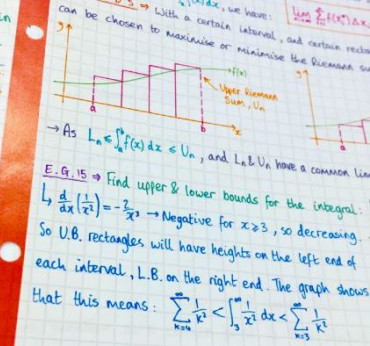 dx, we have:
⇒ With a certain interval, and certain recta
can be chosen to maximise or minimise the Riemann su
lim Σ f(x*) Δx
y
f(x)
Upper Riemann
Sum, Uₙ
a
b
x
y
a
→ As Lₙ ≤ ∫ₐᵇ f(x) dx ≤ Uₙ, and Lₙ & Uₙ have a common lim
E.G. 15 ⇒ Find upper & lower bounds for the integral:
↳ d/dx (1/x²) = -2/x³ → Negative for x≥3, so decreasing.
So U.B. rectangles will have heights on the left end of
each interval, L.B. on the right end. The graph shows
that this means: ∑_{k=4}^∞ 1/k² < ∫₃^∞ 1/x² dx < ∑_{k=3}^∞ 1/k²